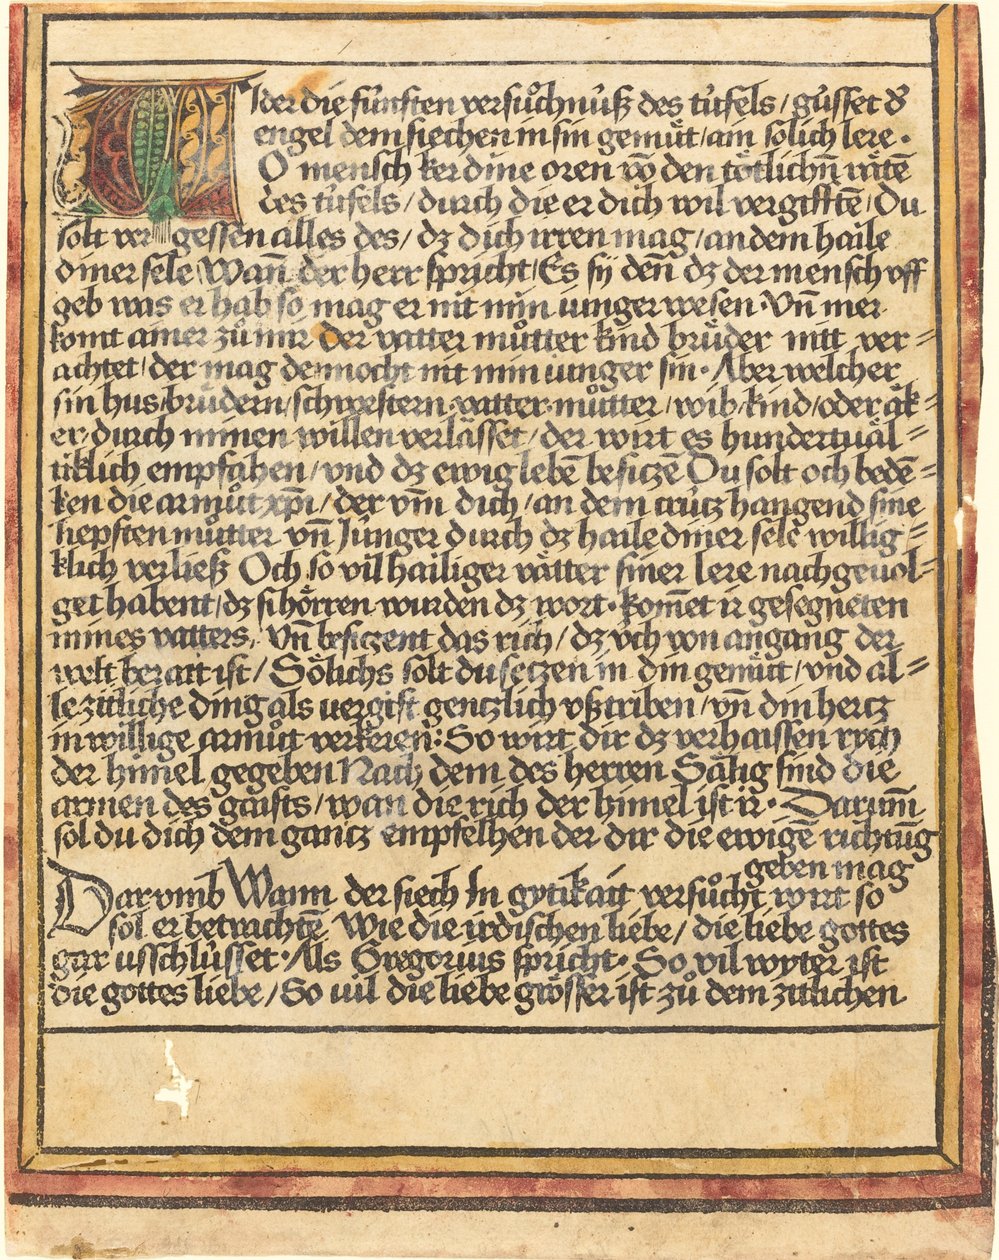 WIder die fúnfften versůchnúß des túfels / gússet d'
engel dem siechen in sin gemu̍t / ain solich lere ·
O mensch ker dine oren vō den tötlichn̄ räte͂
des túfels / durch die er dich wil vergifften̄ / Du
solt vergessen alles des / dz dich irren mag / an dem haile
diner sele / Wan̄ der herr spricht / Es sÿ den̄ dz der mensch vff
geb was er hab so mag er nit min iunger wesen · Vn̄ mer
komt ainer zů mir der vatter můtter kind brüder nitt ver⸗
achtet / der mag dennocht nit min iunger sin · Aber welcher
sin hus / brüdern / schwestern vatter · můtter / wib / kind / oder äk⸗
er durch minen willen verlässet / der wirt es hundertuäl⸗
tiklich empfahen / vnd dz ewig lebe͂ besicze͂ Du solt och bede͂⸗
ken die armůt xp̄i / der vm̄ dich / an dem crúcz hangend sine
liepsten můtter vn̄ Junger durch dz haile diner sele willig⸗
klich verließ Och so vil hailiger vätter siner lere nachgeuol⸗
get habent / dz si hörren wurden dz wort · kom̄et ir gesegneten
mines vatters · Vn̄ besiczent das rich / dz vch von angang der
welt beraitt ist / Sölichs solt du seczen in din gemüt / vnd al⸗
le zittliche ding als uergift genczlich vßtriben / vn̄ din hercz
in willige armůtt verkeren : So wirt dir dz verhaissen rych
der him̄el gegeben Nach dem des herren Sälig sind die
armen des gaists / wan die rich der him̄el ist ir · Darum̄
sol du dich dem gantz empfelhen der dir die ewige͂ richtūg
geben mag
Darumb Wann der siech In gytikait versůcht wirt so
sol er betrachte͂ Wie die irdischen liebe / die liebe gottes
gar usschlússet · Als Gregorius spricht · So vil wyter ist
die gottes liebe / So uil die liebe grösser ist zů dem zitlichen